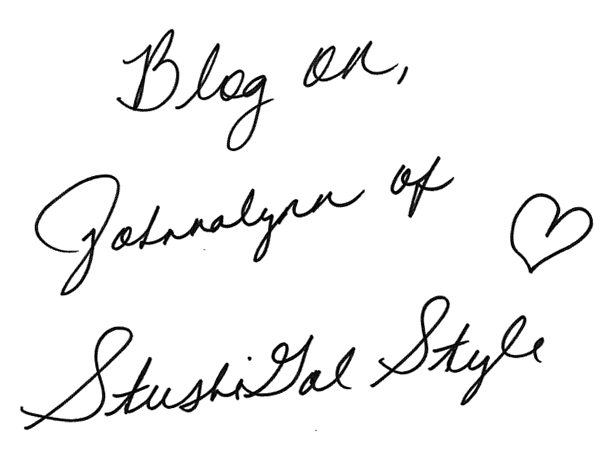 Blog on,
Johnnalynn of
StushiGal Style